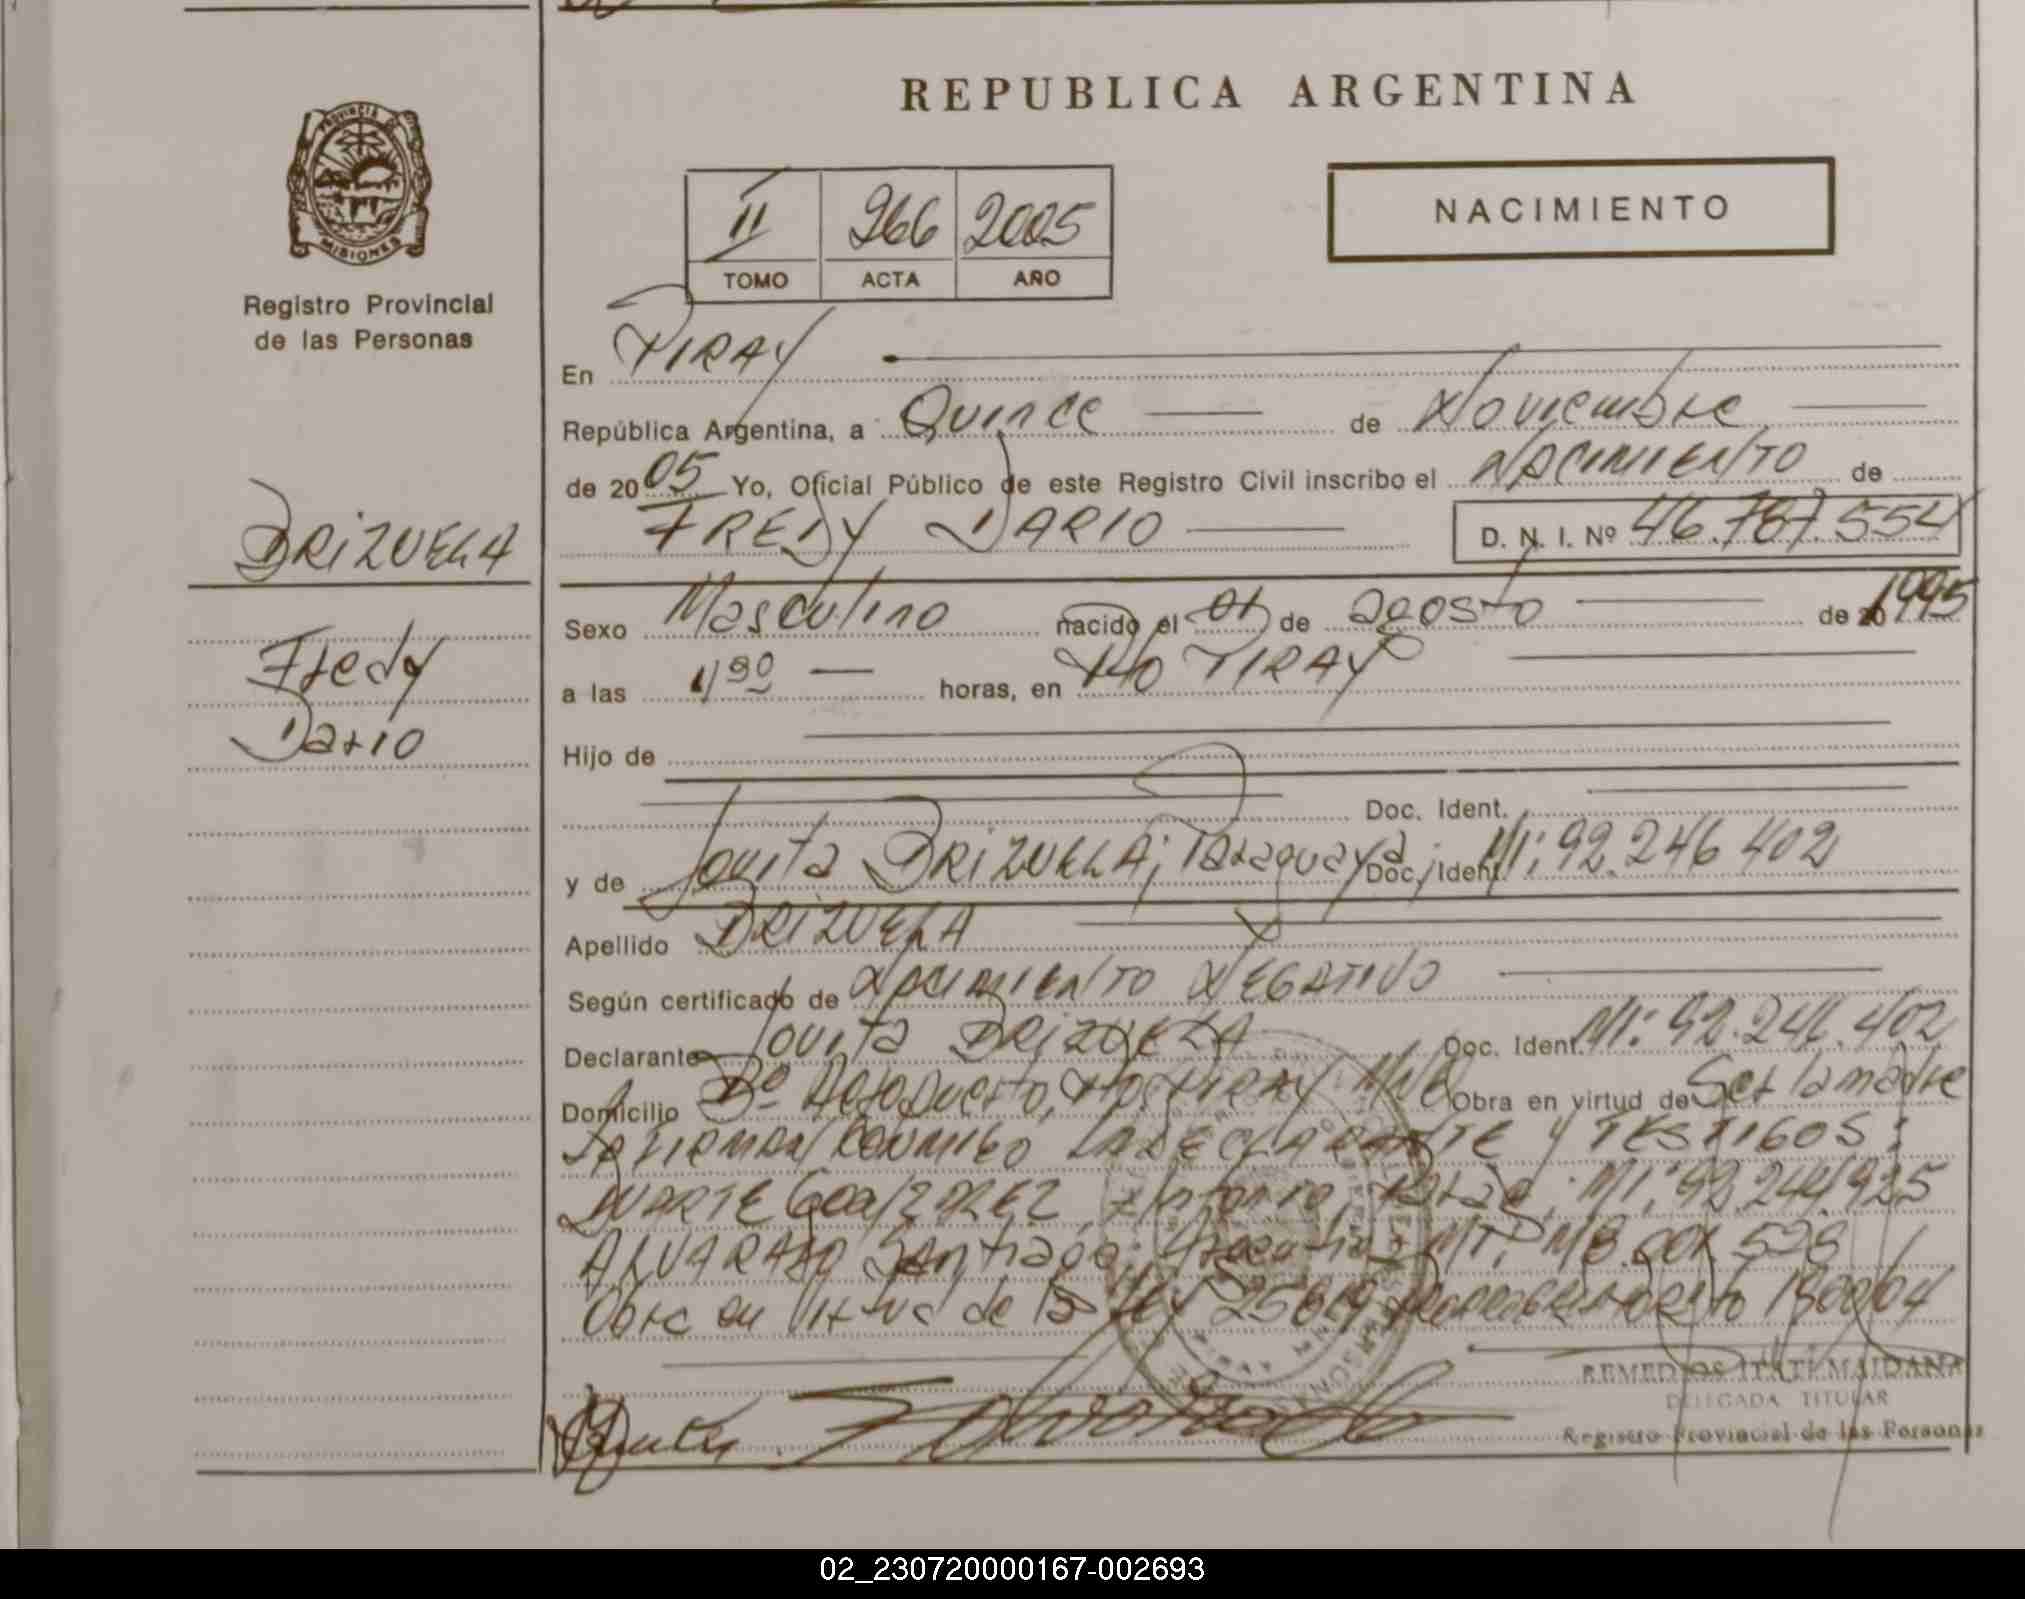 REPUBLICA ARGENTINA
PROVINCIA DE
MISIONES
Registro Provincial
de las Personas
II 266 2005
TOMO ACTA AÑO
NACIMIENTO
En PIRAY
República Argentina, a Quince de Noviembre
de 2005 Yo, Oficial Público de este Registro Civil inscribo el NACIMIENTO de
FREDY DARIO D. N. I. Nº 46.787.554
BRIZUELA
Fredy
Dario
Sexo Masculino nacido el 01 de agosto de 20 1995
a las horas, en Pto PIRAY
Hijo de
Doc. Ident.
y de Jovita BRIZUELA; Paraguaya Doc. Ident. MI: 92.246 402
Apellido BRIZUELA
Según certificado de NACIMIENTO NEGATIVO
Declarante Jovita BRIZUELA Doc. Ident. MI: 92.246.402
Domicilio Bº Aeropuerto, Pto. PIRAY Mnes Obra en virtud de Ser la madre
FIRMAN CONMIGO LA DECLARANTE Y TESTIGOS:
DUARTE GONZALEZ, Antonio, MI: 92.244.925
ALVARADO Santiago; Argentino
Obra en Virtud de la Ley 25819
REMEDIOS ITATI MAIDANA
DELEGADA TITULAR
Registro Provincial de las Personas
02_230720000167-002693